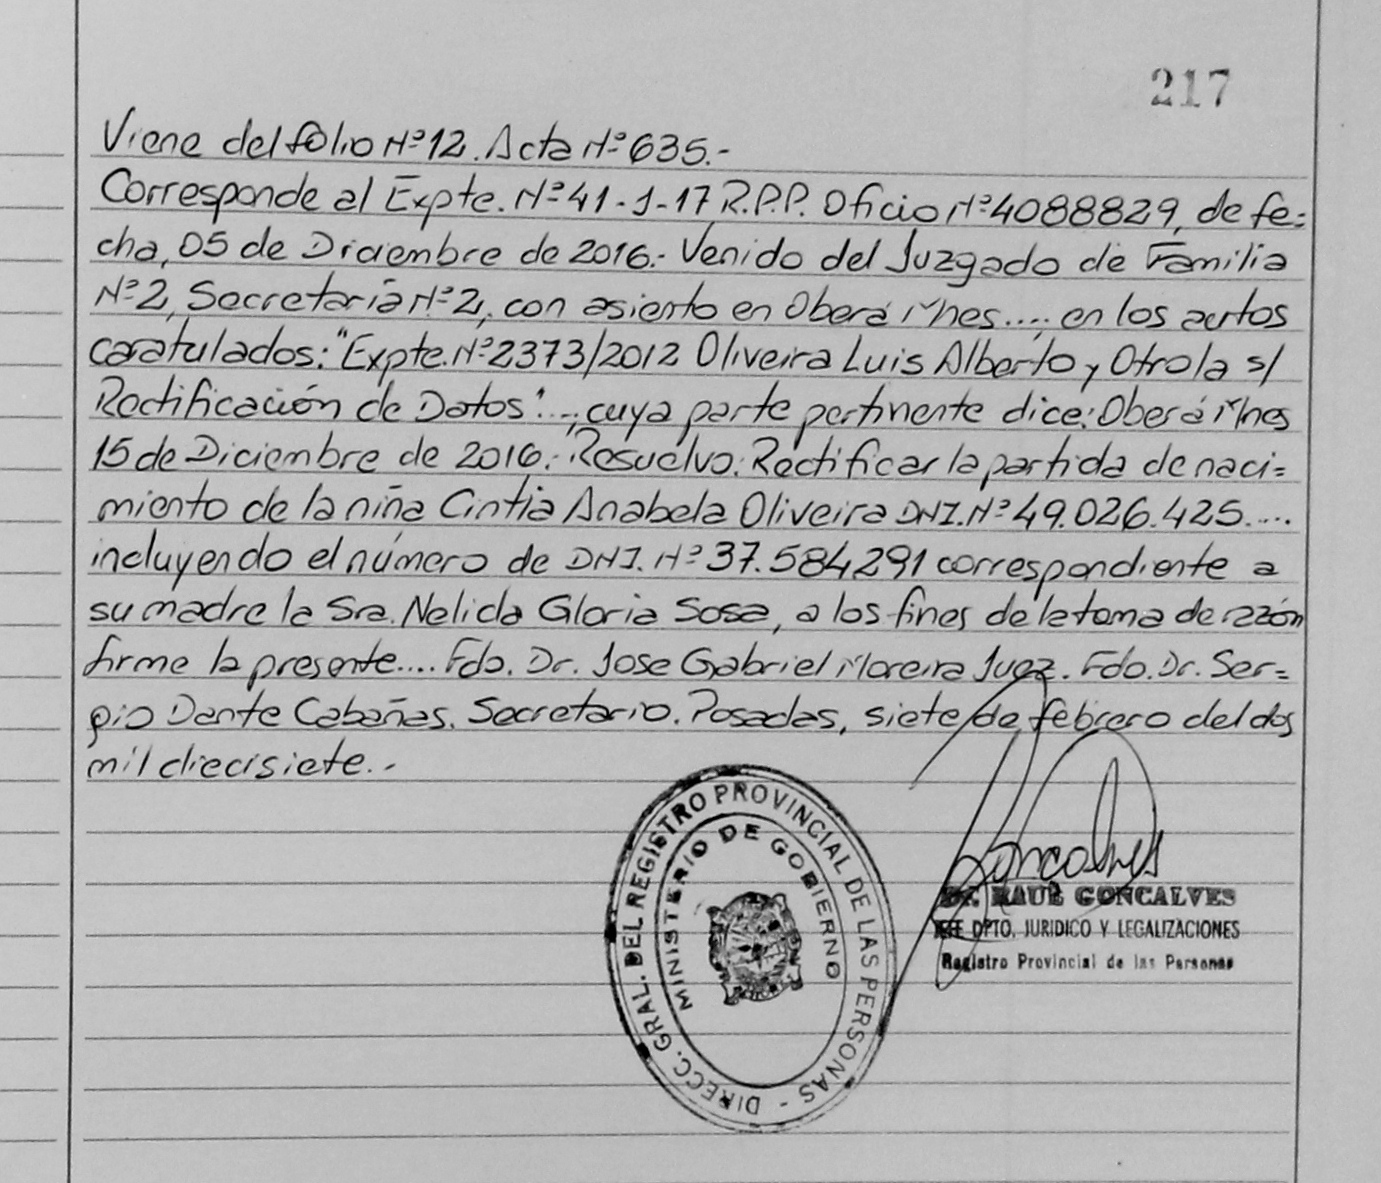 217
Viene del folio Nº12. Acta Nº635.-
Corresponde al Expte. Nº41-J-17 R.P.P. Oficio Nº4088829, de fe=
cha, 05 de Diciembre de 2016.- Venido del Juzgado de Familia
Nº2, Secretaría Nº2, con asiento en Oberá Mnes...., en los autos
caratulados: "Expte. Nº2373/2012 Oliveira Luis Alberto y Otro/a s/
Rectificación de Datos"..., cuya parte pertinente dice: Oberá Mnes
15 de Diciembre de 2016.- Resuelvo: Rectificar la partida de naci=
miento de la niña Cintia Anabela Oliveira DNI. Nº 49.026.425....
incluyendo el número de DNI. Nº 37.584291 correspondiente a
su madre la Sra. Nelida Gloria Sosa, a los fines de la toma de razón
firme la presente.... Fdo. Dr. Jose Gabriel Moreira Juez. Fdo. Dr. Ser=
gio Dante Cabañas. Secretario. Posadas, siete de febrero del dos
mil diecisiete.-
DIRECC. GRAL. DEL REGISTRO PROVINCIAL DE LAS PERSONAS -
MINISTERIO DE GOBIERNO
Goncalves
Dr. RAUL GONCALVES
JEFE DPTO. JURIDICO Y LEGALIZACIONES
Registro Provincial de las Personas